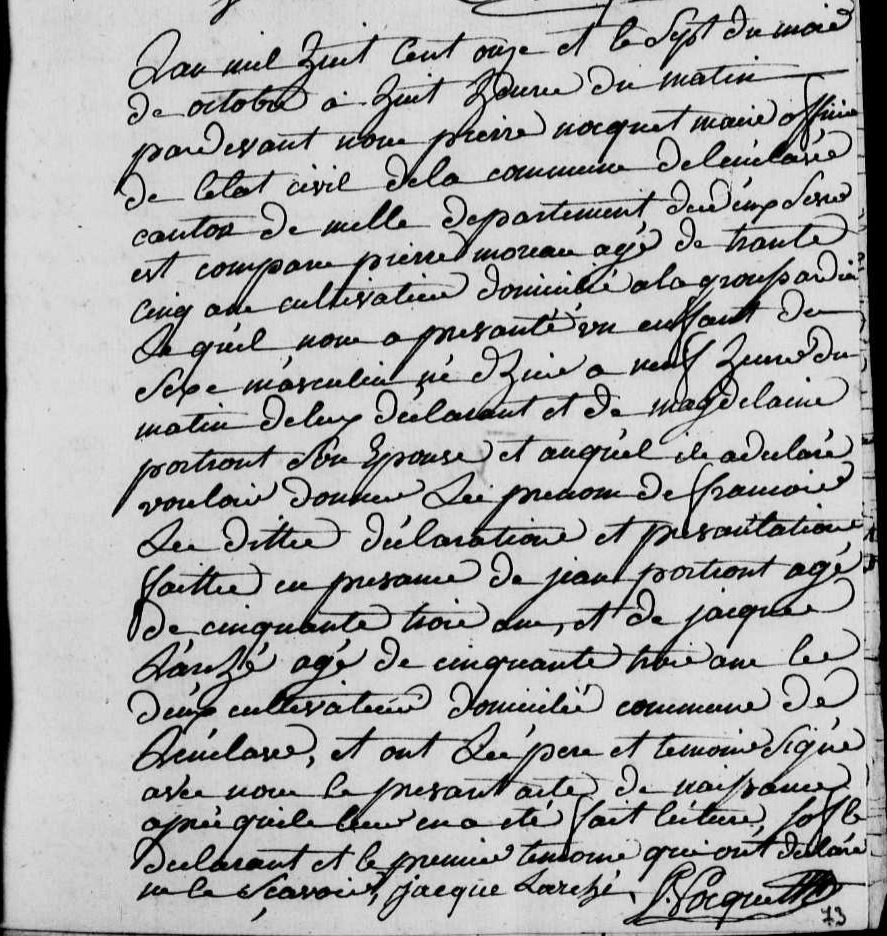 Lan mil huit Cent onze et le Sept du mois
de octobre à huit heures du matin
pardevant nous pierre nocquet maire officier
de letat civil dela commune de lenclave
canton de melle departement des deux Sevre
est comparu pierre moreau agé de trante
cinq ans cultivateur domicilié a la
Lequel nous a presanté un enffant du
Sexe masculin né dhier a neuf heures du
matin deluy déclarant et de magdelaine
portront Son Epouse et auquel ils a déclaré
vouloir donner Les prenom de francois
Les dittes déclarations et presantations
faittes en presance de jean portront agé
de cinquante trois ans, et de jacques
Larché agé de cinquante trois ans les
deux cultivateurs domicilié commune de
Lenclave, et ont Les pere et temoins Signé
avec nous le presant acte de naissance
apres quils leur en a eté fait lecture, sof le
declarant et le premier temoins qui ont declaré
ne le Sçavoir, jacque Larché. P. Nocquet
73